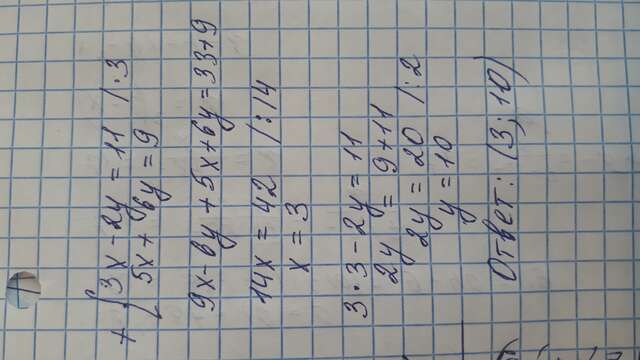 + { 3x - 2y = 11 | · 3
5x + 6y = 9
9x - 6y + 5x + 6y = 33 + 9
14x = 42 | : 14
x = 3
3 · 3 - 2y = 11
2y = 9 + 11
2y = 20 | : 2
y = 10
Ответ: (3; 10)